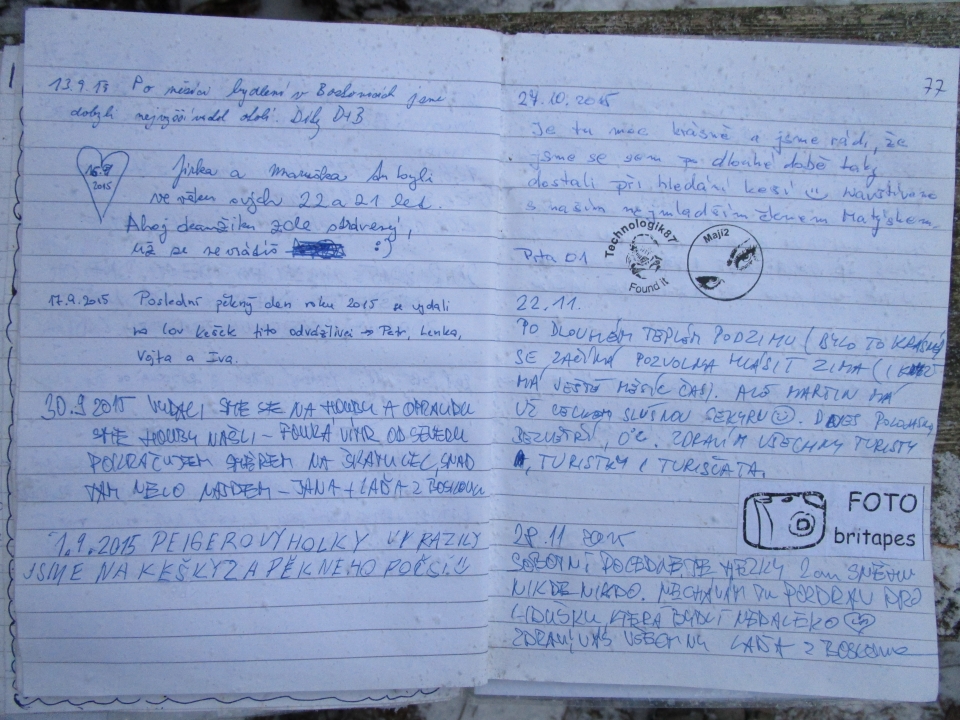 13.9.15 Po měsíci bydlení v Boskovicích jsme
dobyli nejvyšší vrchol okolí. Díky D+B
2015
Jirka a Maruška
ve věku svých 22 a 21 let.
Ahoj deníku zde
už se
:)
17.9.2015 Poslední pěkný den roku 2015 se vydali
na lov kešek tito odvážlivci → Petr, Lenka,
Vojta a Iva.
30.9 2015 VYDALI SME SE NA HOUBY A OPRAVDU
SME HOUBY NAŠLI - FOUKÁ VÍTR OD SEVERU
POKRAČUJEM SMĚREM NA SNAD
TAM NĚCO NAJDEM - JANA + LÁĎA Z BOSKOVIC
1.9.2015 PEIGEROVY HOLKY VYRAZILY
JSME NA KEŠKY ZA PĚKNÉHO POČSÍ
77
24.10.2015
Je tu moc krásně a jsme rádi, že
jsme se sem po dlouhé době taky
dostali při hledání keší Navštíveno
s naším nejmladším členem Matýskem.
Technologik87
Found it
Maji2
22.11.
PO DLOUHÉM TEPLÉM PODZIMU (BYLO TO KRÁSNÉ)
SE ZAČÍNÁ POZVOLNA HLÁSIT ZIMA (I KDYŽ
MÁ JEŠTĚ MĚSÍC ČAS). ALE MARTIN MÁ
UŽ CELKEM SLUŠNOU SEKYRU DNES
BEZVĚTŘÍ, 0°C. ZDRAVÍM VŠECHNY TURISTY
, TURISTKY I TURISČATA.
FOTO
britapes
28.11 2015
SOBOTNÍ POLEDNE JE HEZKY 2cm SNĚHU
NIKDE NIKDO. NECHÁVÁM TU POZDRAV PRO
LIDUŠKU, KTERÁ BYDLÍ NEDALEKO
ZDRAVÍ VÁS VŠECHNY LÁĎA Z BOSKOVIC